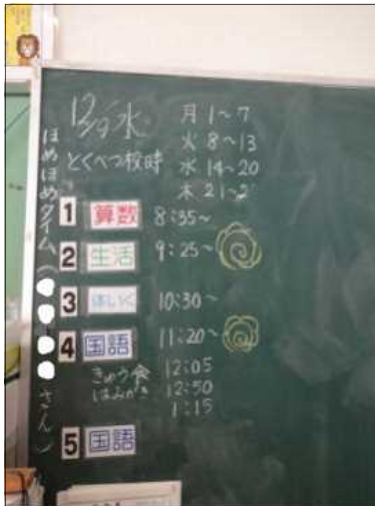 12/9 水
とくべつ校時
月 1～7
火 8～13
水 14～20
木 21～2
ほめほめタイム（
さん）
1 算数 8:35～
2 生活 9:25～
3 体いく 10:30～
4 国語 11:20～
きゅう食 12:05
はみがき 12:50
1:15
5 国語